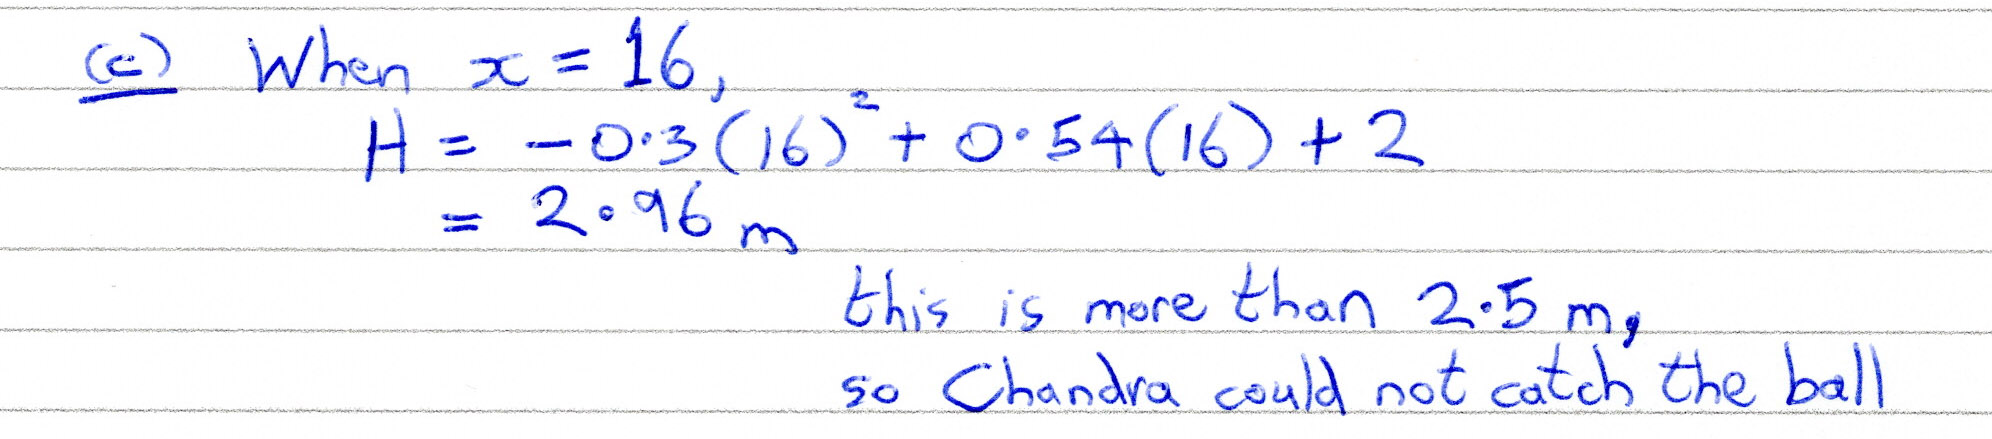 (c) When x = 16,
H = -0.3(16)² + 0.54(16) + 2
= 2.96 m
this is more than 2.5 m,
so Chandra could not catch the ball